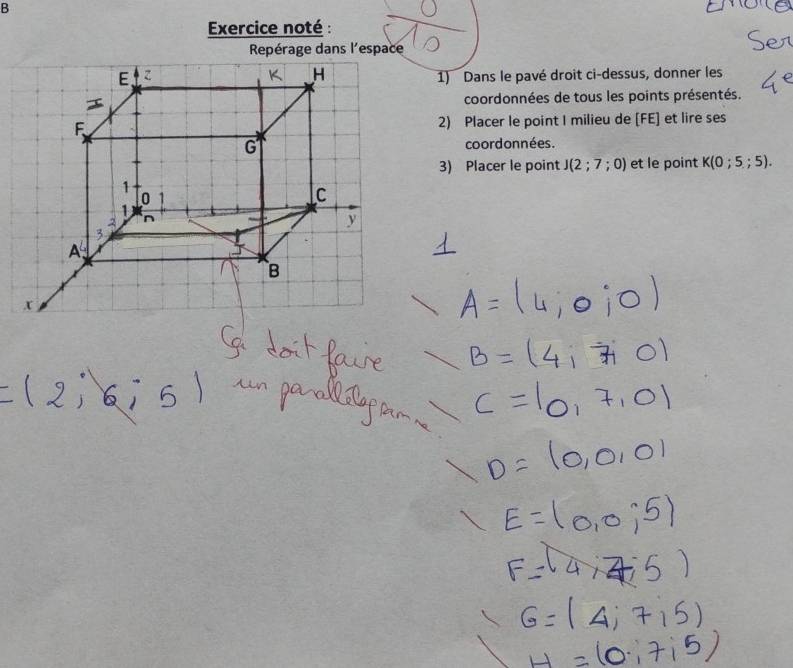 B
Exercice noté :
Repérage dans l'espace
10
Ser
4e
1) Dans le pavé droit ci-dessus, donner les
coordonnées de tous les points présentés.
2) Placer le point I milieu de [FE] et lire ses
coordonnées.
3) Placer le point J(2 ; 7 ; 0) et le point K(0 ; 5 ; 5).
E z K H
I
F G
1 0 1 C
1 D y
2
3
A 4 J
B
x
Ça doit faire
un parallélogramme.
= (2 ; 6 ; 5)
1
A = (4 ; 0 ; 0)
B = (4 ; 7 ; 0)
C = (0, 7, 0)
D = (0, 0, 0)
E = (0, 0 ; 5)
F = (4 ; 4 ; 5)
G = (4 ; 7 ; 5)
H = (0 ; 7 ; 5)